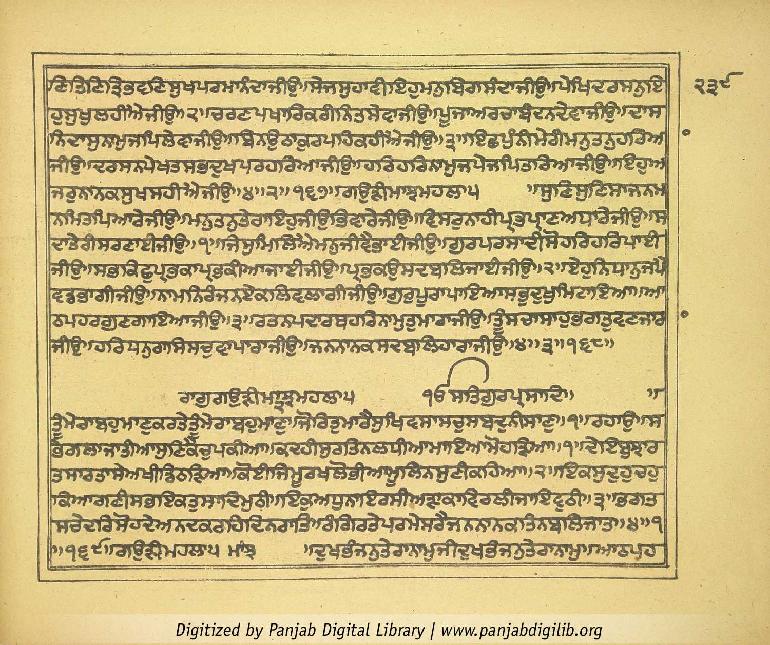 ਣਿਤਿਣਿਤ੍ਰਿਭਵਣਿਸੁਖਪਰਮਾਨੰਦਾਜੀਉ॥ਸੇਜਸੁਹਾਵੀਇਹੁਮਨੁਬਿਗਸੰਦਾਜੀਉ॥ਪੇਖਿਦਰਸਨੁਇ ੨੩੯
ਹੁਸੁਖੁਲਹੀਐਜੀਉ॥੨॥ਚਰਣਪਖਾਰਿਕਰੀਨਿਤਸੇਵਾਜੀਉ॥ਪੂਜਾਅਰਚਾਬੰਦਨਦੇਵਾਜੀਉ॥ਦਾਸ
ਨਿਦਾਸੁਨਾਮੁਜਪਿਲੇਵਾਜੀਉ॥ਬਿਨਉਠਾਕੁਰਪਹਿਕਹੀਐਜੀਉ॥੩॥ਇਛਪੁੰਨੀਮੇਰੀਮਨੁਤਨੁਹਰਿਆ
ਜੀਉ॥ਦਰਸਨਪੇਖਤਸਭਦੁਖਪਰਹਰਿਆਜੀਉ॥ਹਰਿਹਰਿਨਾਮੁਜਪੇਜਪਿਤਰਿਆਜੀਉ॥ਇਹੁਅ
ਜਰੁਨਾਨਕਸੁਖੁਸਹੀਐਜੀਉ॥੪॥੨॥੧੬੭॥ਗਉੜੀਮਾਝਮਹਲਾ੫ ॥ਸੁਣਿਸੁਣਿਸਾਜਨਮ
ਨਮਿਤਪਿਆਰੇਜੀਉ॥ਮਨੁਤਨੁਤੇਰਾਇਹੁਜੀਉਭਿਵਾਰੇਜੀਉ॥ਵਿਸਰੁਨਾਹੀਪ੍ਰਭਪ੍ਰਾਣਅਧਾਰੇਜੀਉ॥ਸ
ਦਾਤੇਰੀਸਰਣਾਈਜੀਉ॥੧॥ਜਿਸੁਮਿਲਿਐਮਨੁਜੀਵੈਭਾਈਜੀਉ॥ਗੁਰਪਰਸਾਦੀਸੋਹਰਿਹਰਿਪਾਈ
ਜੀਉ॥ਸਭਕਿਛੁਪ੍ਰਭਕਾਪ੍ਰਭਕੀਆਜਾਈਜੀਉ॥ਪ੍ਰਭਕਉਸਦਬਲਿਜਾਈਜੀਉ॥੨॥ਏਹੁਨਿਧਾਨੁਜਪੈ
ਵਡਭਾਗੀਜੀਉ॥ਨਾਮਨਿਰੰਜਨਏਕਲਿਵਲਾਗੀਜੀਉ॥ਗੁਰੁਪੂਰਾਪਾਇਆਸਭੁਦੁਖੁਮਿਟਾਇਆ॥ਆ
ਠਪਹਰਗੁਣਗਾਇਆਜੀਉ॥੩॥ਰਤਨਪਦਾਰਥਹਰਿਨਾਮੁਤੁਮਾਰਾਜੀਉ॥ਤੂੰਸਚਾਸਾਹੁਭਗਤੁਵਣਜਾਰਾ
ਜੀਉ॥ਹਰਿਧਨੁਰਾਸਿਸਚੁਵਾਪਾਰਾਜੀਉ॥ਜਨਨਾਨਕਸਦਬਲਿਹਾਰਾਜੀਉ॥੪॥੩॥੧੬੮॥
ਰਾਗੁਗਉੜੀਮਾਝਮਹਲਾ੫ ੴਸਤਿਗੁਰਪ੍ਰਸਾਦਿ॥ ॥
ਤੂੰਮੇਰਾਬਹੁਮਾਣੁਕਰਤੇਤੂੰਮੇਰਾਬਹੁਮਾਣੁ॥ਜੋਰਿਤੁਮਾਰੈਸੁਖਿਵਸਾਸਚੁਸਬਦੁਨੀਸਾਣੁ॥੧॥ਰਹਾਉ॥ਸ
ਭੇਗਲਾਜਾਤੀਆਸੁਣਿਕੈਚੁਪਕੀਆ॥ਕਦਹੀਸੁਰਤਿਨਲਧੀਆਮਾਇਆਮੋਹੜਿਆ॥੧॥ਦੇਇਬੁਝਾਰ
ਤਸਾਰਤਾਸੇਅਖੀਡਿਠੜਿਆ॥ਕੋਈਜਿਮੂਰਖੁਲੋਭੀਆਮੂਲਿਨਸੁਣੀਕਹਿਆ॥੨॥ਇਕਸੁਦੁਹੁਚਹੁ
ਕਿਆਗਣੀਸਭਇਕਤੁਸਾਦਿਮੁਠੀ॥ਇਕੁਅਧੁਨਾਇਰਸੀਅੜਾਕਾਵਿਰਲੀਜਾਇਵੁਠੀ॥੩॥ਭਗਤ
ਸਚੇਦਰਿਸੋਹਦੇਅਨਦਕਰਹਿਦਿਨਰਾਤਿ॥ਰੰਗਿਰਤੇਪਰਮੇਸਰੈਜਨਨਾਨਕਤਿਨਬਲਿਜਾਤ॥੪॥੧
॥੧੬੯॥ਗਉੜੀਮਹਲਾ੫ ਮਾਂਝ ॥ਦੁਖਭੰਜਨੁਤੇਰਾਨਾਮੁਜੀਦੁਖਭੰਜਨੁਤੇਰਾਨਾਮੁ॥ਆਠਪਹ
Digitized by Panjab Digital Library | www.panjabdigilib.org